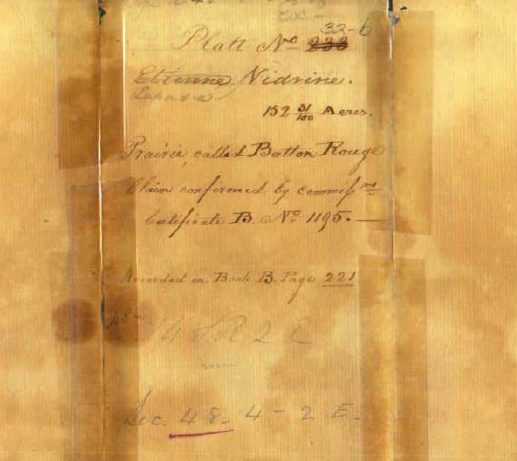 33-b
Platt No 233
Etienne Vidrine.
152 31/100 Acres.
Prairie, called Botton Rouge
Claim confirmed by commissrs
Certificate B. No 1195.
Recorded in Book B. Page 221
48-
4 S R 2 E
Sec. 48 - 4 - 2 E.